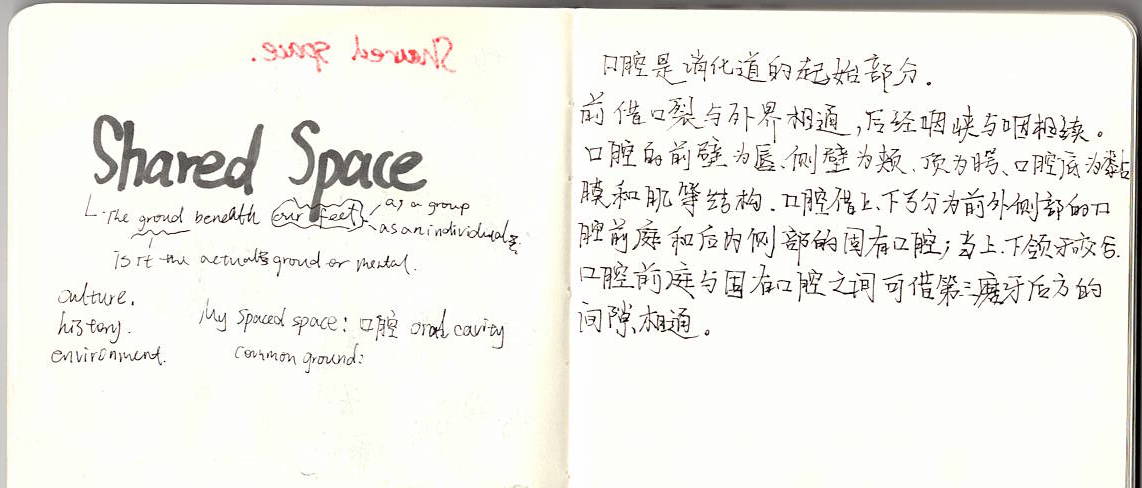 Shared space.
Shared Space
The groud beneath our feet as a group
as an individual
Is it the actual groud or mental.
culture.
history.
environment.
My Spaced space: 口腔 oral cavity
common ground:
口腔是消化道的起始部分.
前借口裂与外界相通,后经咽峡与咽相续。
口腔的前壁为唇、侧壁为颊、顶为腭、口腔底为黏
膜和肌等结构.口腔借上、下弓分为前外侧部的口
腔前庭和后内侧部的固有口腔;当上、下颌牙咬合.
口腔前庭与固有口腔之间可借第三磨牙后方的
间隙相通。